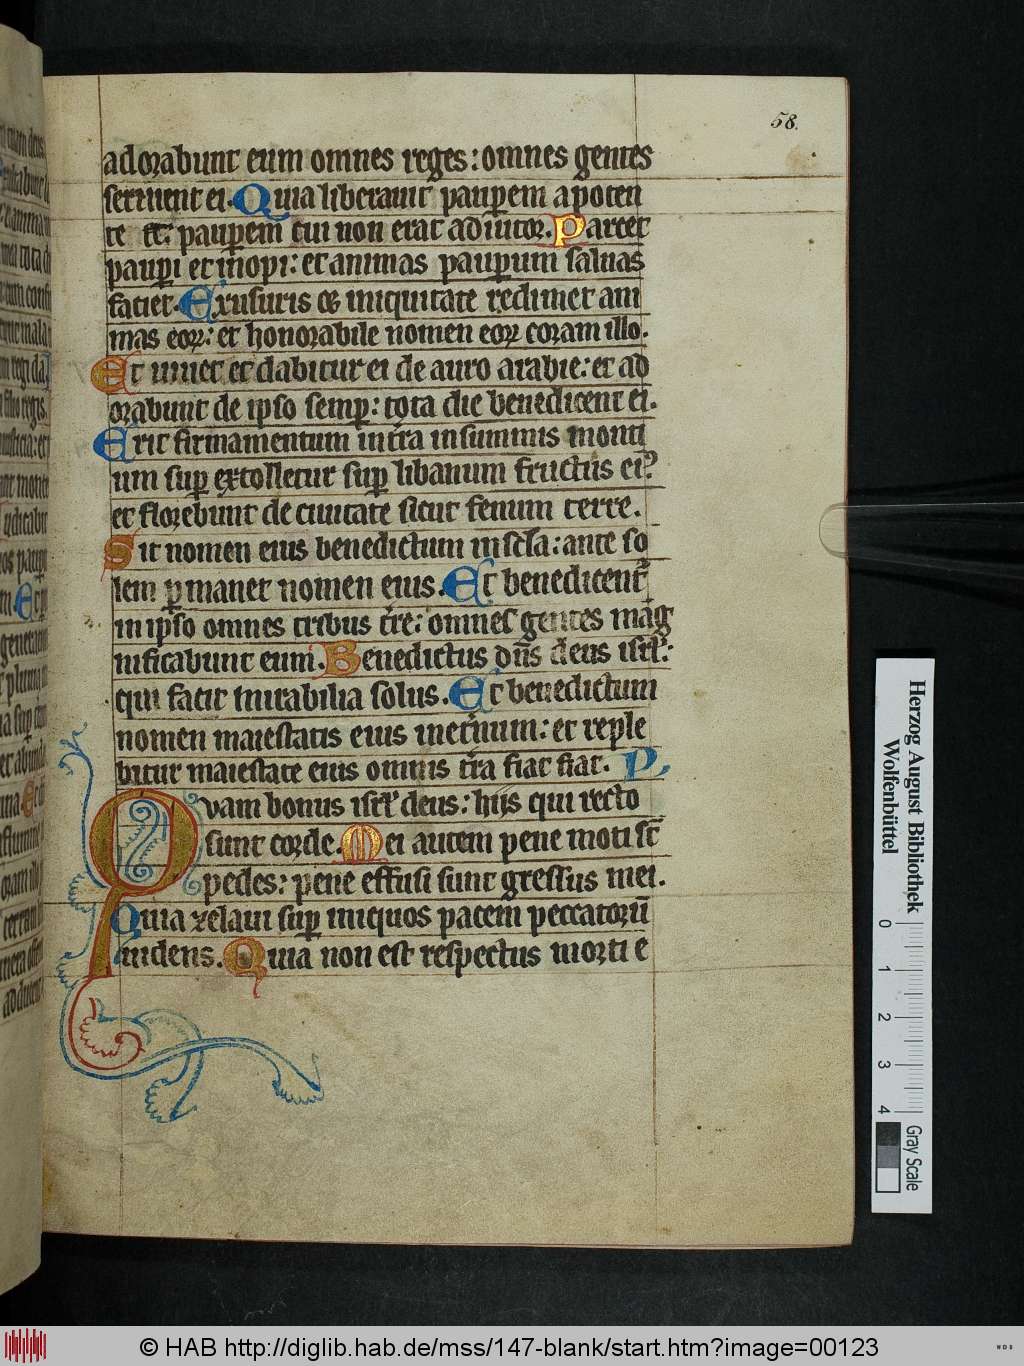 58.
adorabunt eum omnes reges: omnes gentes
seruient ei. Quia liberauit pauꝑem a poten
te et: pauꝑem cui non erat adiutor. Parcet
pauꝑi et inopi: et animas pauꝑum saluas
faciet. Ex usuris et iniquitate redimet ani
mas eoꝝ: et honorabile nomen eoꝝ coram illo.
Et uiuet et dabitur ei de auro arabie: et ad
orabunt de ipso semꝑ: tota die benedicent ei.
Erit firmamentum in tr̄a in summis monti
um suꝑ extolletur suꝑ libanum fructus ei⁹
et florebunt de ciuitate sicut fenum terre.
Sit nomen eius benedictum in scl̄a: ante so
lem ꝑmanet nomen eius. Et benedicent̄
in ipso omnes tribus tr̄e: omnes gentes mag
nificabunt eum. Benedictus dn̄s deus isrl̄:
qui facit mirabilia solus. Et benedictum
nomen maiestatis eius inet̄num: et reple
bitur maiestate eius omnis tr̄a fiat fiat. P,
Quam bonus isrl̄ deus: hijs qui recto
sunt corde. Mei autem pene moti st̄
pedes: pene effusi sunt gressus mei.
Quia zelaui suꝑ iniquos pacem peccatorū
uidens. Quia non est respectus morti e
Herzog August Bibliothek
Wolfenbüttel
0 1 2 3 4
Gray Scale
© HAB http://diglib.hab.de/mss/147-blank/start.htm?image=00123